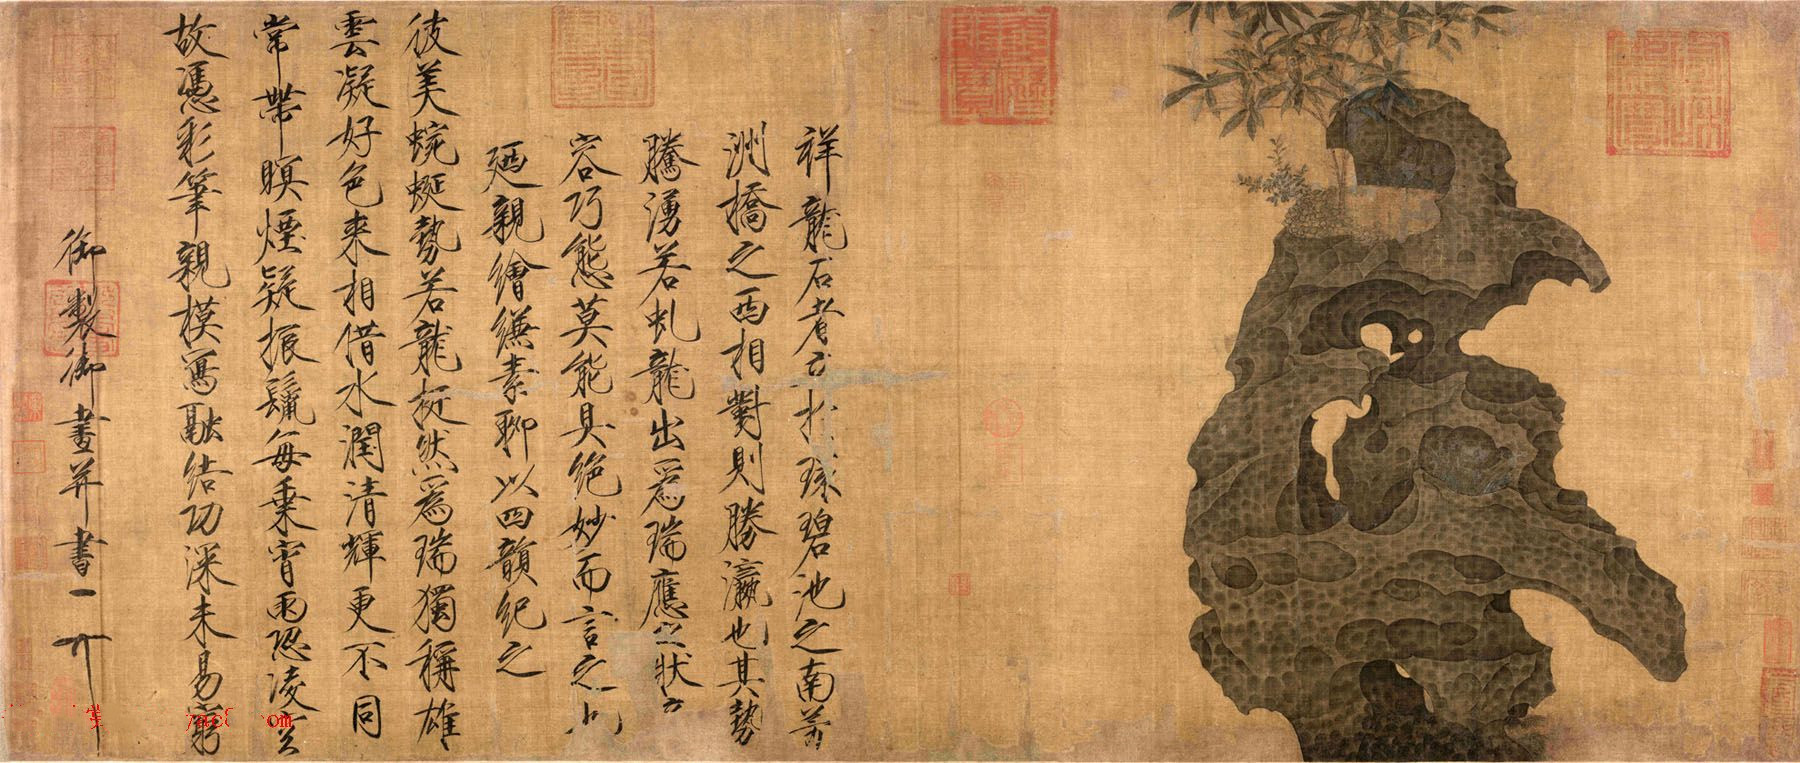 祥龍石者立於環碧池之南芳
洲橋之西相對則勝瀛也其勢
騰湧若虬龍出爲瑞應之狀奇
容巧態莫能具絕妙而言之也
廼親繪縑素聊以四韻紀之
彼美蜿蜒勢若龍挺然爲瑞獨稱雄
雲凝好色來相借水潤清輝更不同
常帶瞑煙疑振鬣每乘宵雨恐凌空
故憑彩筆親模寫融結功深未易窮
御製御畫并書